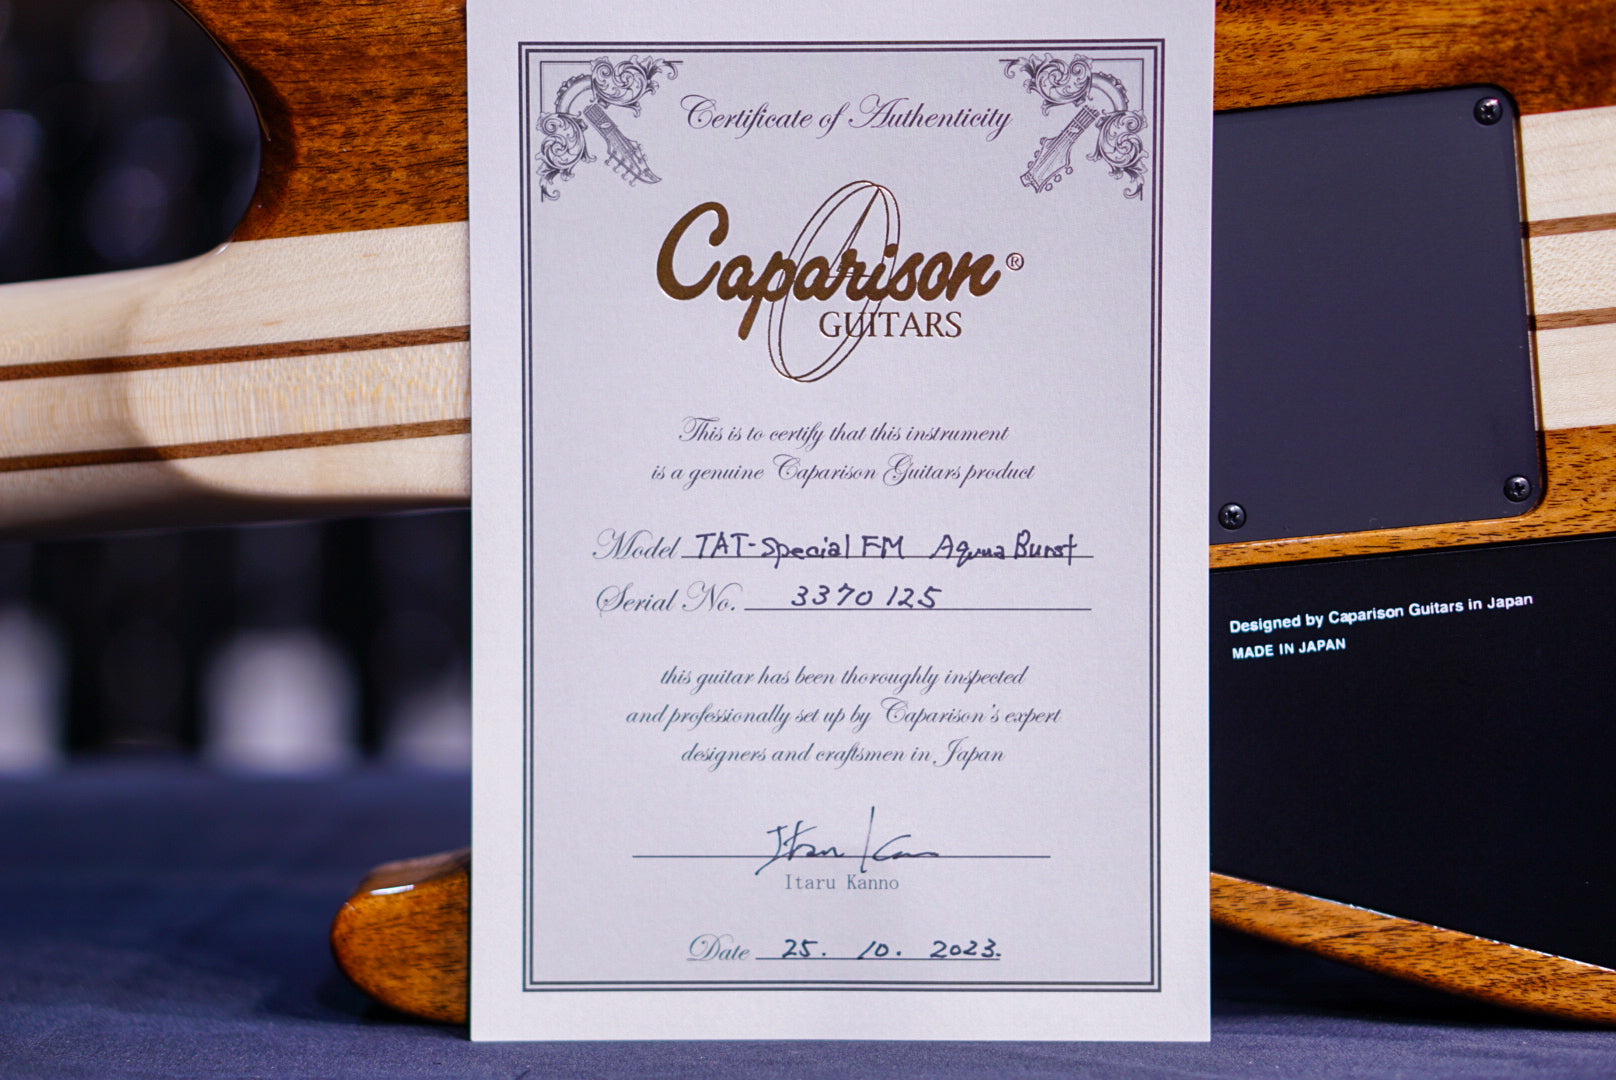 Certificate of Authenticity
Caparison®
GUITARS
This is to certify that this instrument
is a genuine Caparison Guitars product
Model TAT-Special FM Aqua Burst
Serial No. 3370125
this guitar has been thoroughly inspected
and professionally set up by Caparison's expert
designers and craftsmen in Japan
Itaru Kanno
Itaru Kanno
Date 25. 10. 2023.
Designed by Caparison Guitars in Japan
MADE IN JAPAN